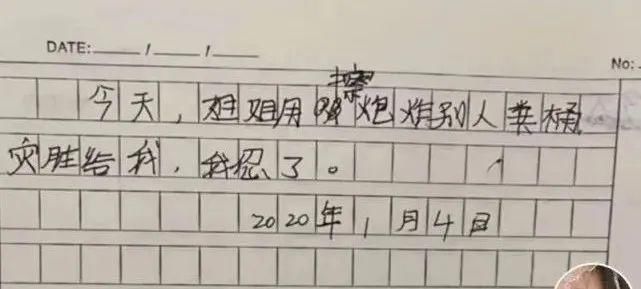 DATE: ___/___/___
No:
今天，姐姐用擦炮炸别人粪桶
灾胜给我，我忍了。
2020年1月4日